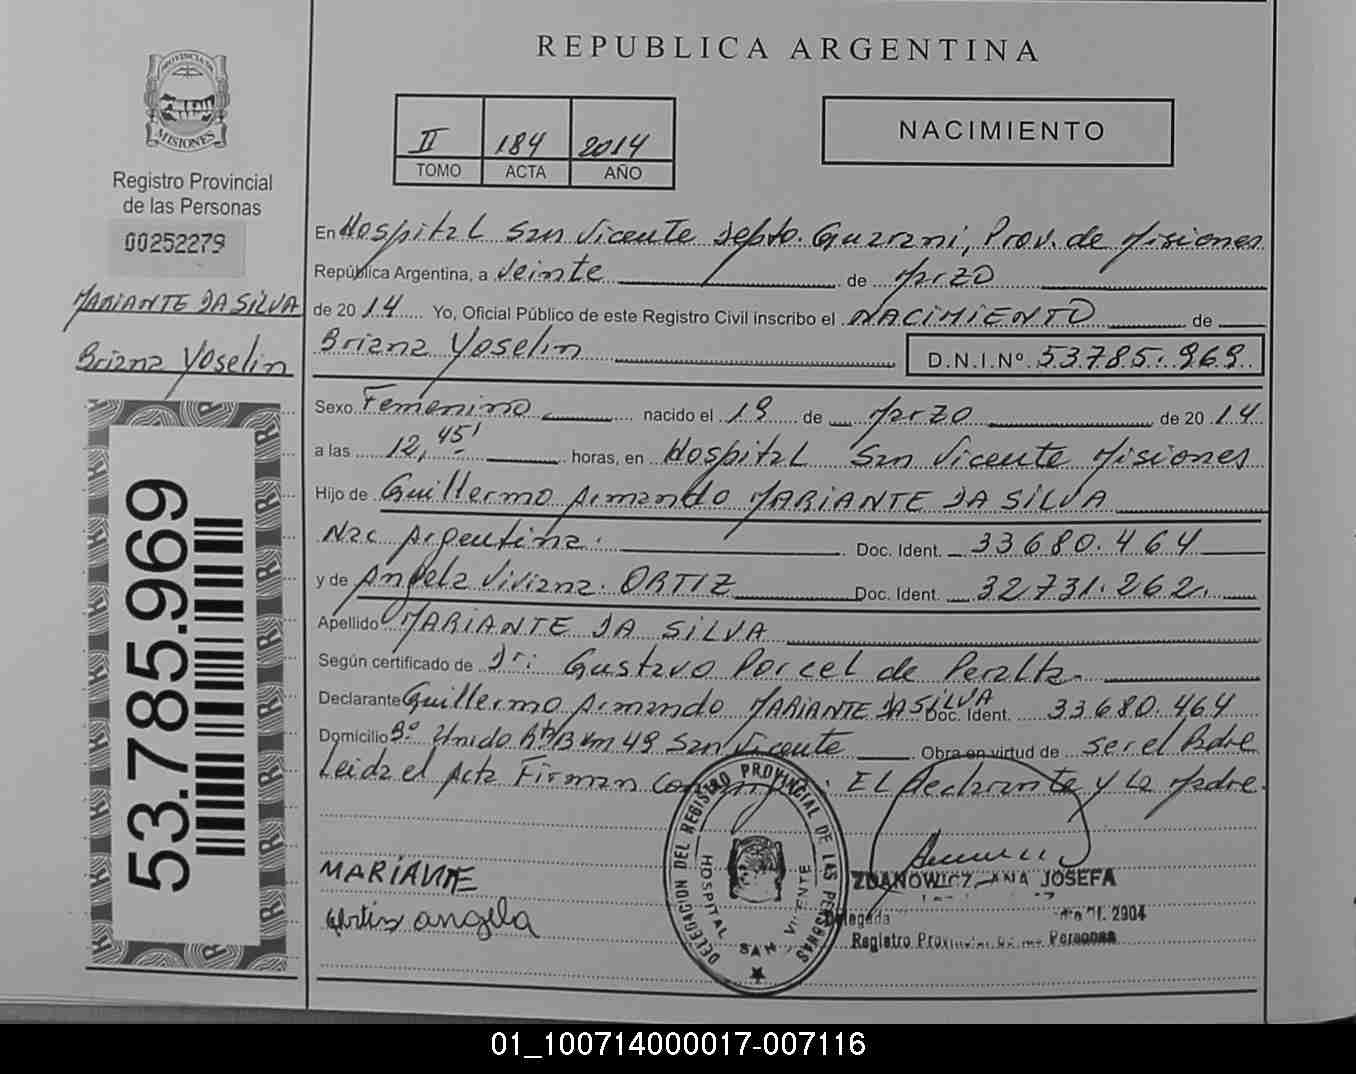 REPUBLICA ARGENTINA
PROVINCIA DE
MISIONES
Registro Provincial
de las Personas
00252279
MARIANTE DA SILVA
Briana Yoselin
53.785.969
II 184 2014
TOMO ACTA AÑO
NACIMIENTO
En Hospital San Vicente Depto. Guarani, Prov. de Misiones
República Argentina, a Veinte de Marzo
de 2014 Yo, Oficial Público de este Registro Civil inscribo el NACIMIENTO de
Briana Yoselin D.N.I.Nº 53.785.969.
Sexo Femenino nacido el 19 de Marzo de 2014
a las 12,45' horas, en Hospital San Vicente Misiones
Hijo de Guillermo Armando MARIANTE DA SILVA
Nac Argentina. Doc. Ident. 33680.464
y de Angela Viviana. ORTIZ Doc. Ident. 32.731.262.
Apellido MARIANTE DA SILVA
Según certificado de Dr: Gustavo Porcel de Peralta.
Declarante Guillermo Armando MARIANTE DA SILVA Doc. Ident. 33680.464
Domicilio Bº Unido Km 49 San Vicente Obra en virtud de ser el Padre
Leida el Acta Firman : EL declarante y La Madre.
MARIANTE
Ortiz angela
DELEGACION DEL REGISTRO PROVINCIAL DE LAS PERSONAS
HOSPITAL SAN VICENTE
ZDANOWICZ ANA JOSEFA
Delegada
2904
Registro Provincial de las Personas
01_100714000017-007116